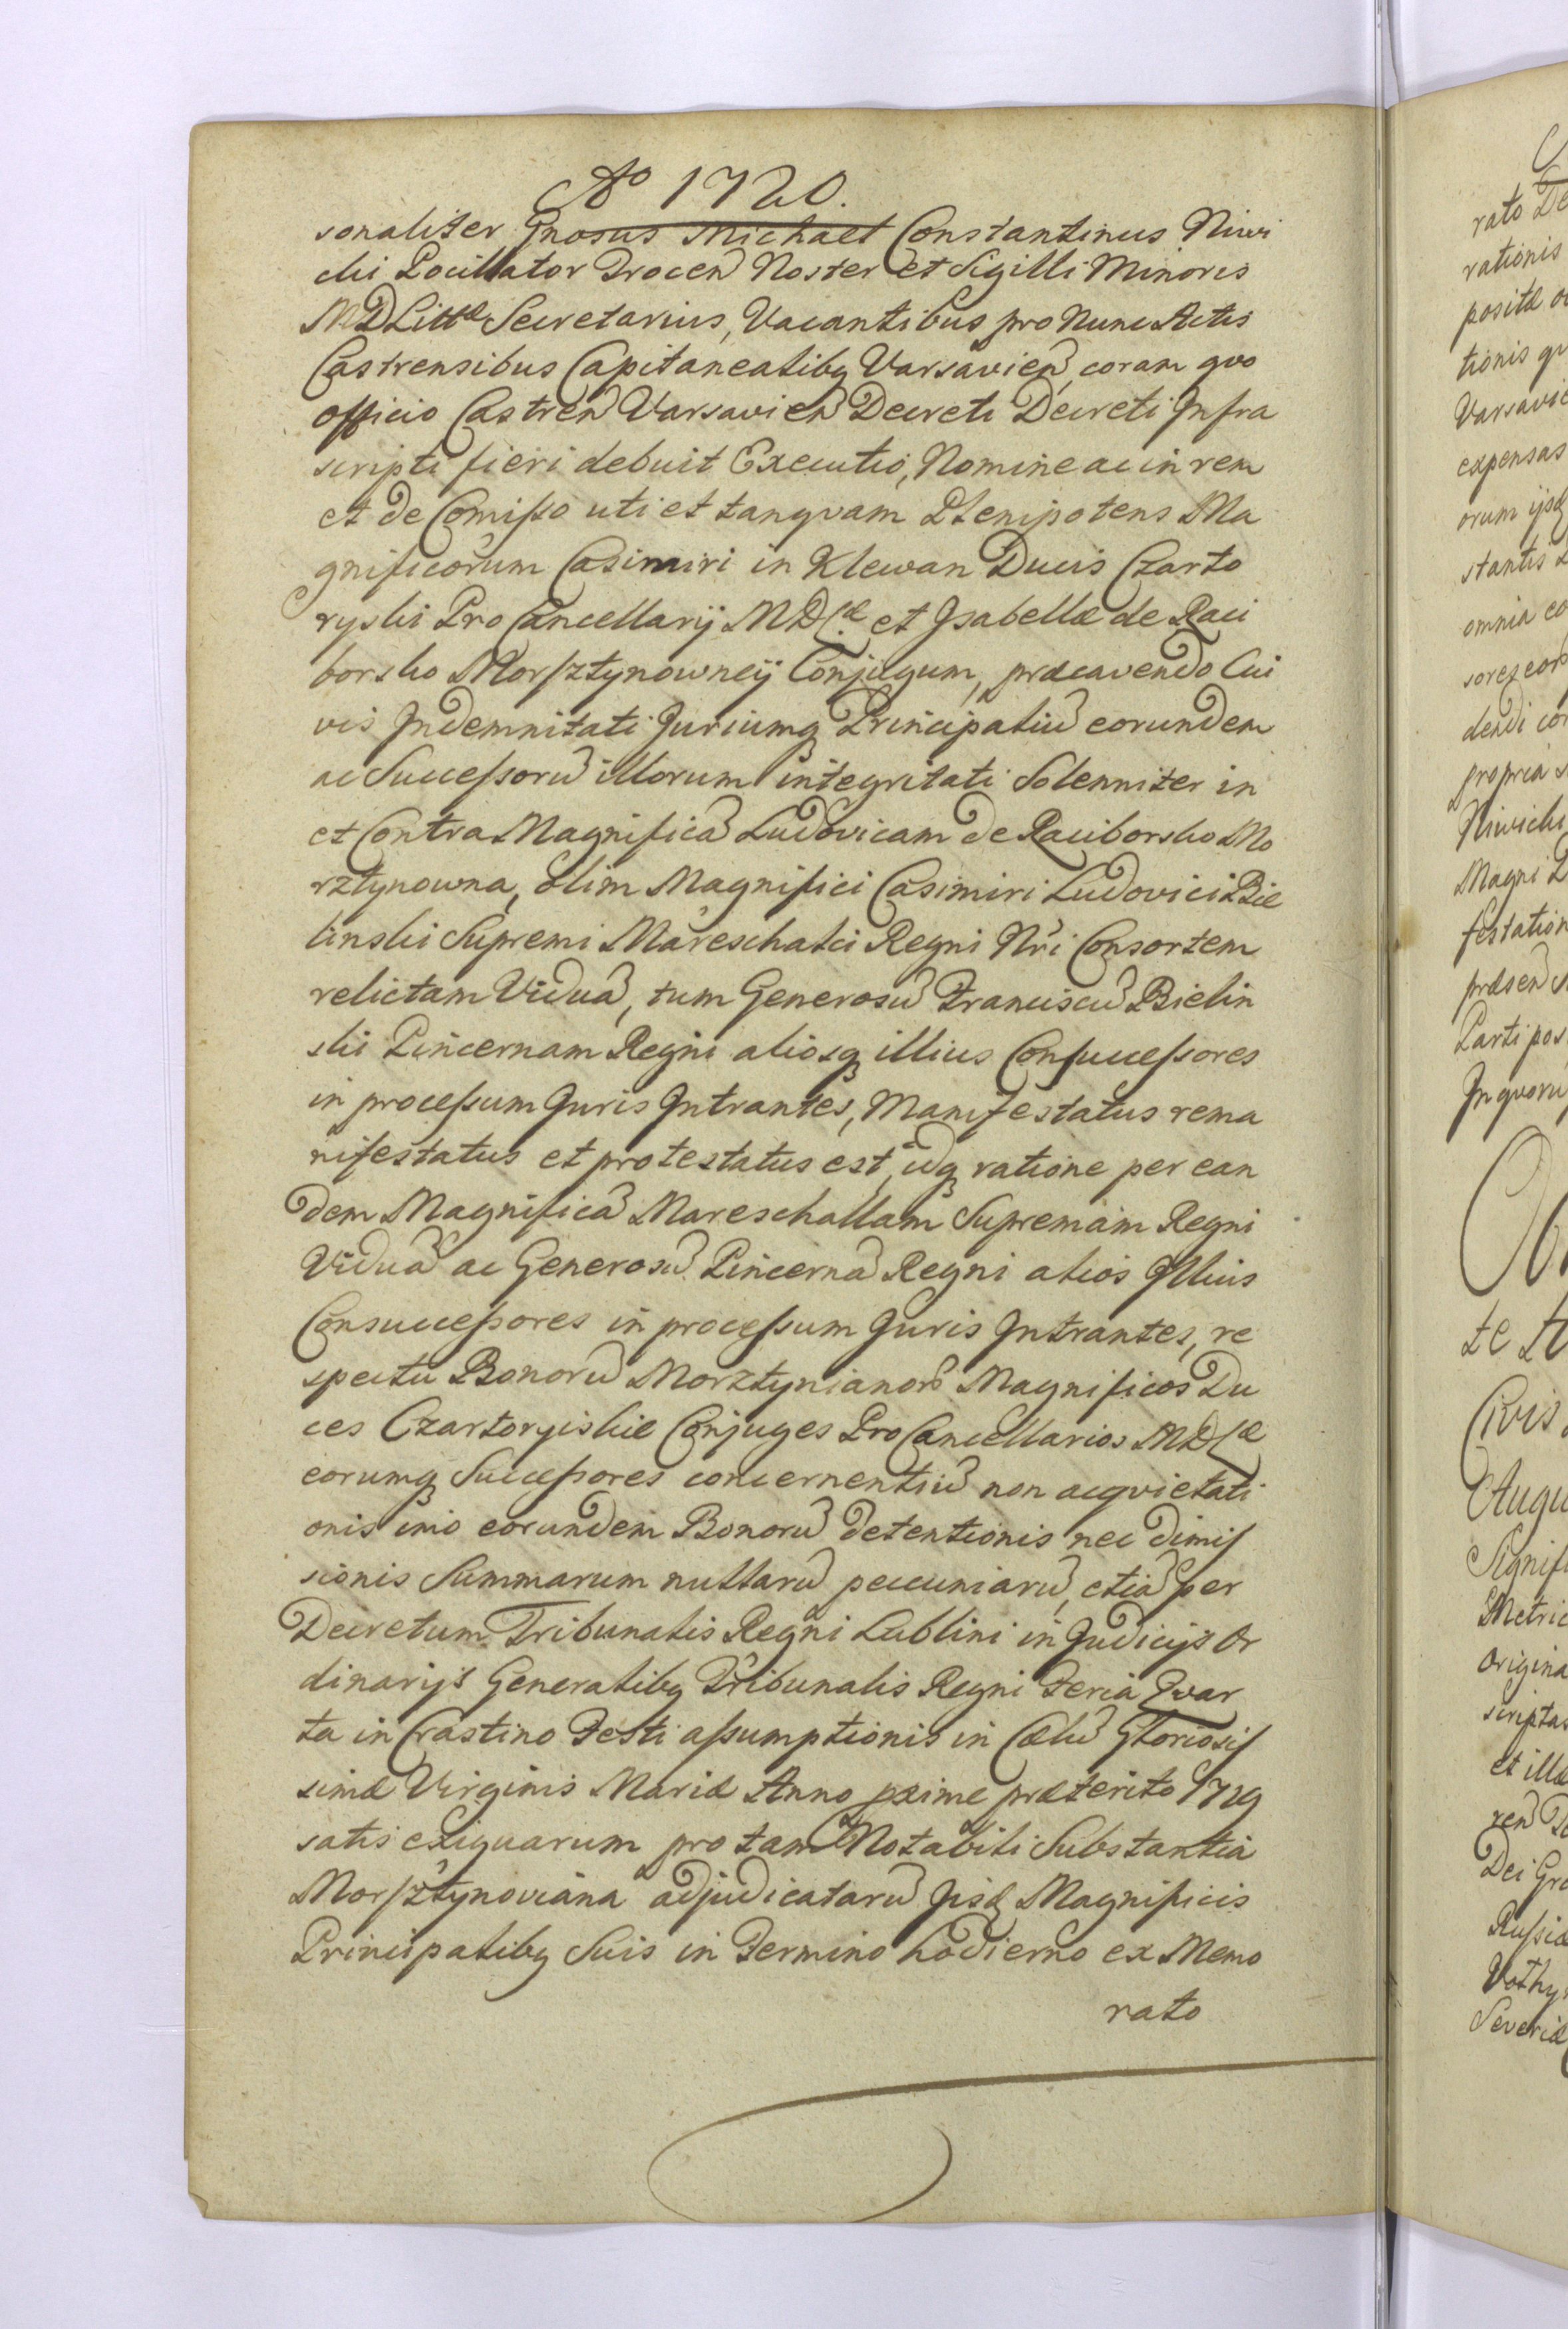 Ao 1720.
sonaliter Gnosus Michael Constantinus Niwi
cki Pocillator Trocen̄ Noster et Sigilli Minoris
MDLittæ Secretarius, Vacantibus pro Nunc Actis
Castrensibus Capitanealibq Varsavien̄, coram qvo
officio Castren̄ Varsavien̄ Decreti Decreti Infra
scripti fieri debuit Executio, Nomine ac in rem
et de Comiſso uti et tanqvam Plenipotens Ma
gnificorum Casimiri in Klewan Ducis Czarto
ryski ProCancellarij MDLæ et Isabellæ de Raci
borsko Morſztynowneÿ Conjugum, præcavendo Cui
vis Indemnitati Juriumq Principaliū eorundem
ac Succeſsorū illorum integritati Solenniter in
et Contra Magnificā Ludovicam de Raciborsko Mo
rztynowna, olim Magnifici Casimiri Ludovici Bie
linski Supremi Mareschalci Regni Nri Consortem
relictam Viduā, tum Generosū Franciscū Bielin
ski Pincernam Regni aliosq illius Conſucceſsores
in proceſsum Juris Intrantes, Manifestatus rema
nifestatus et protestatus est, idq ratione per ean
dem Magnificā Mareschallam Supremam Regni
Viduā ac Generosū Pincernā Regni alios Illius
Consucceſsores in proceſsum Juris Intrantes, re
spectu Bonorū Morztynianorū Magnificos Du
ces Czartoryiskie Conjuges ProCancellarios MDLæ
eorumq Succeſsores concernentiū non acqvietati
onis imo eorundem Bonorū detentionis nec dimiſ
sionis Summarum nullarū pecuniarū, etiā per
Decretum Tribunalis Regni Lublini in Judicijs Or
dinarijs Generalibq Tribunalis Regni Feria Qvar
ta in Crastino Festi aſsumptionis in Cælū Glorioſiſ
simæ Virginis Mariæ Anno pxime præterito 1719
satis exiguarum pro tam Notabili Substantia
Morſztynoviana adjudicatarū Iisd Magnificis
Principalibq Suis in Termino hodierno ex Memo
rato